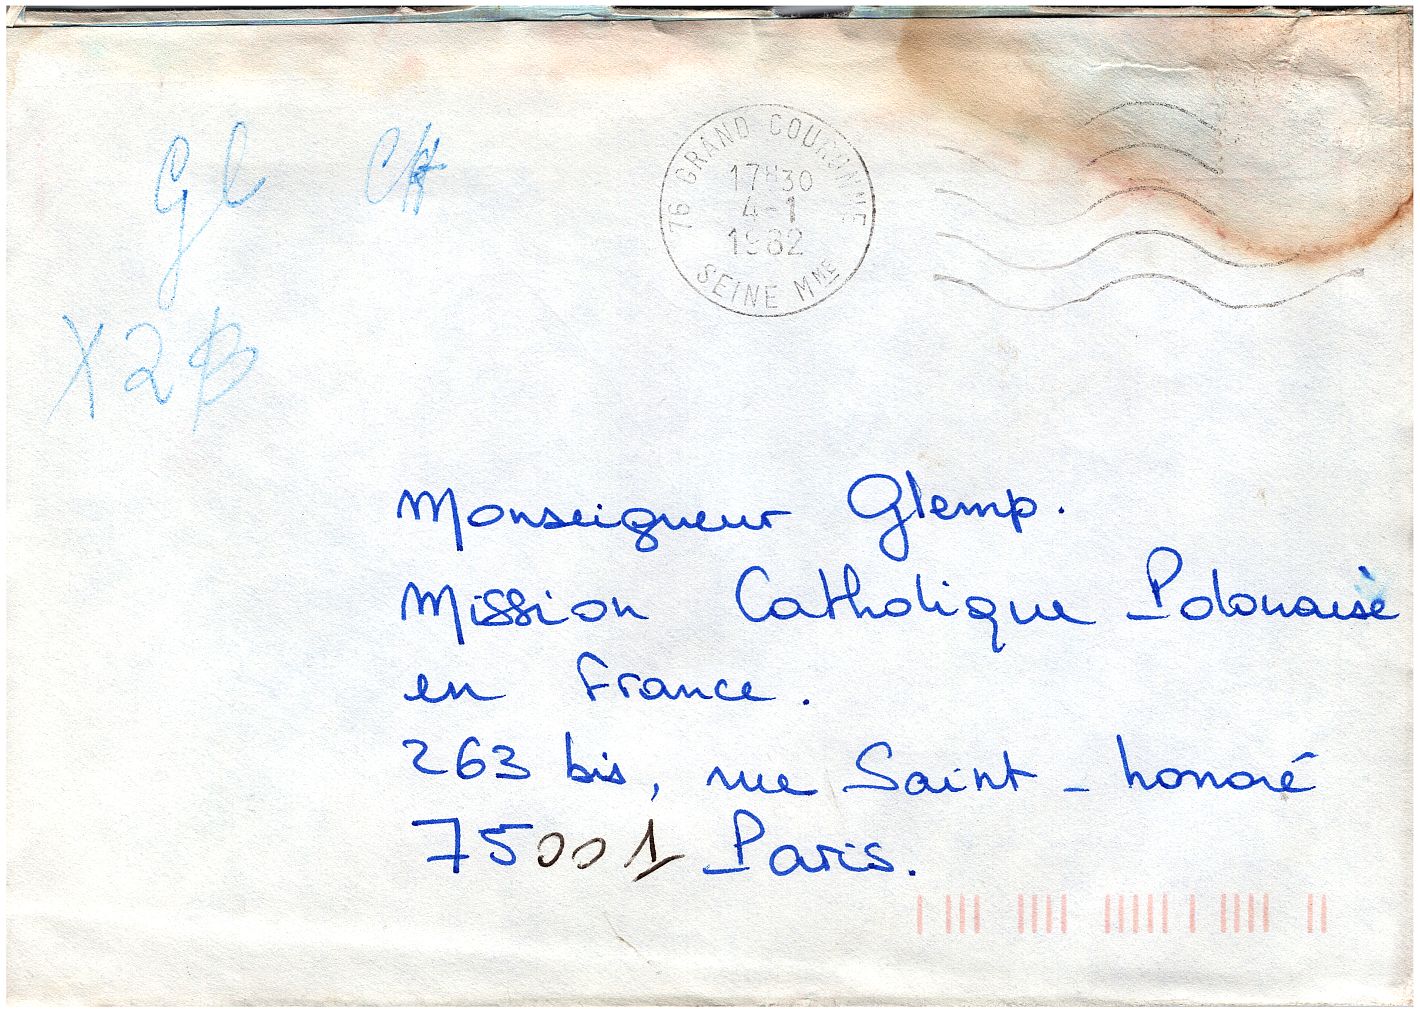 Gl CH
X2B
76 GRAND COURONNE
17H30
4-1
1982
SEINE MME
Monseigneur Glemp.
Mission Catholique Polonaise
en France.
263 bis, rue Saint-honoré
75001 Paris.